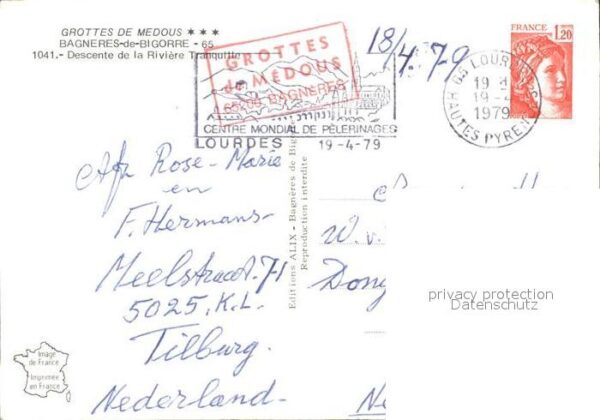 GROTTES DE MEDOUS ★ ★ ★
BAGNERES-de-BIGORRE - 65
1041.- Descente de la Rivière Tranquille
GROTTES
de MÉDOUS
65200 BAGNÈRES
18/4.79
FRANCE 1,20
65 LOURDES
19-4
1979
HAUTES PYRENEES
CENTRE MONDIAL DE PÈLERINAGES
LOURDES 19-4-79
Afz Rose-Marie
en
F. Hermans-
Meelstraat. 71
5025. K.L.
Tilburg.
Nederland-
Editions ALIX - Bagnères de Big
Reproduction interdite
W. v.
Dong
Ne
privacy protection
Datenschutz
Image
de France
Imprimée
en France